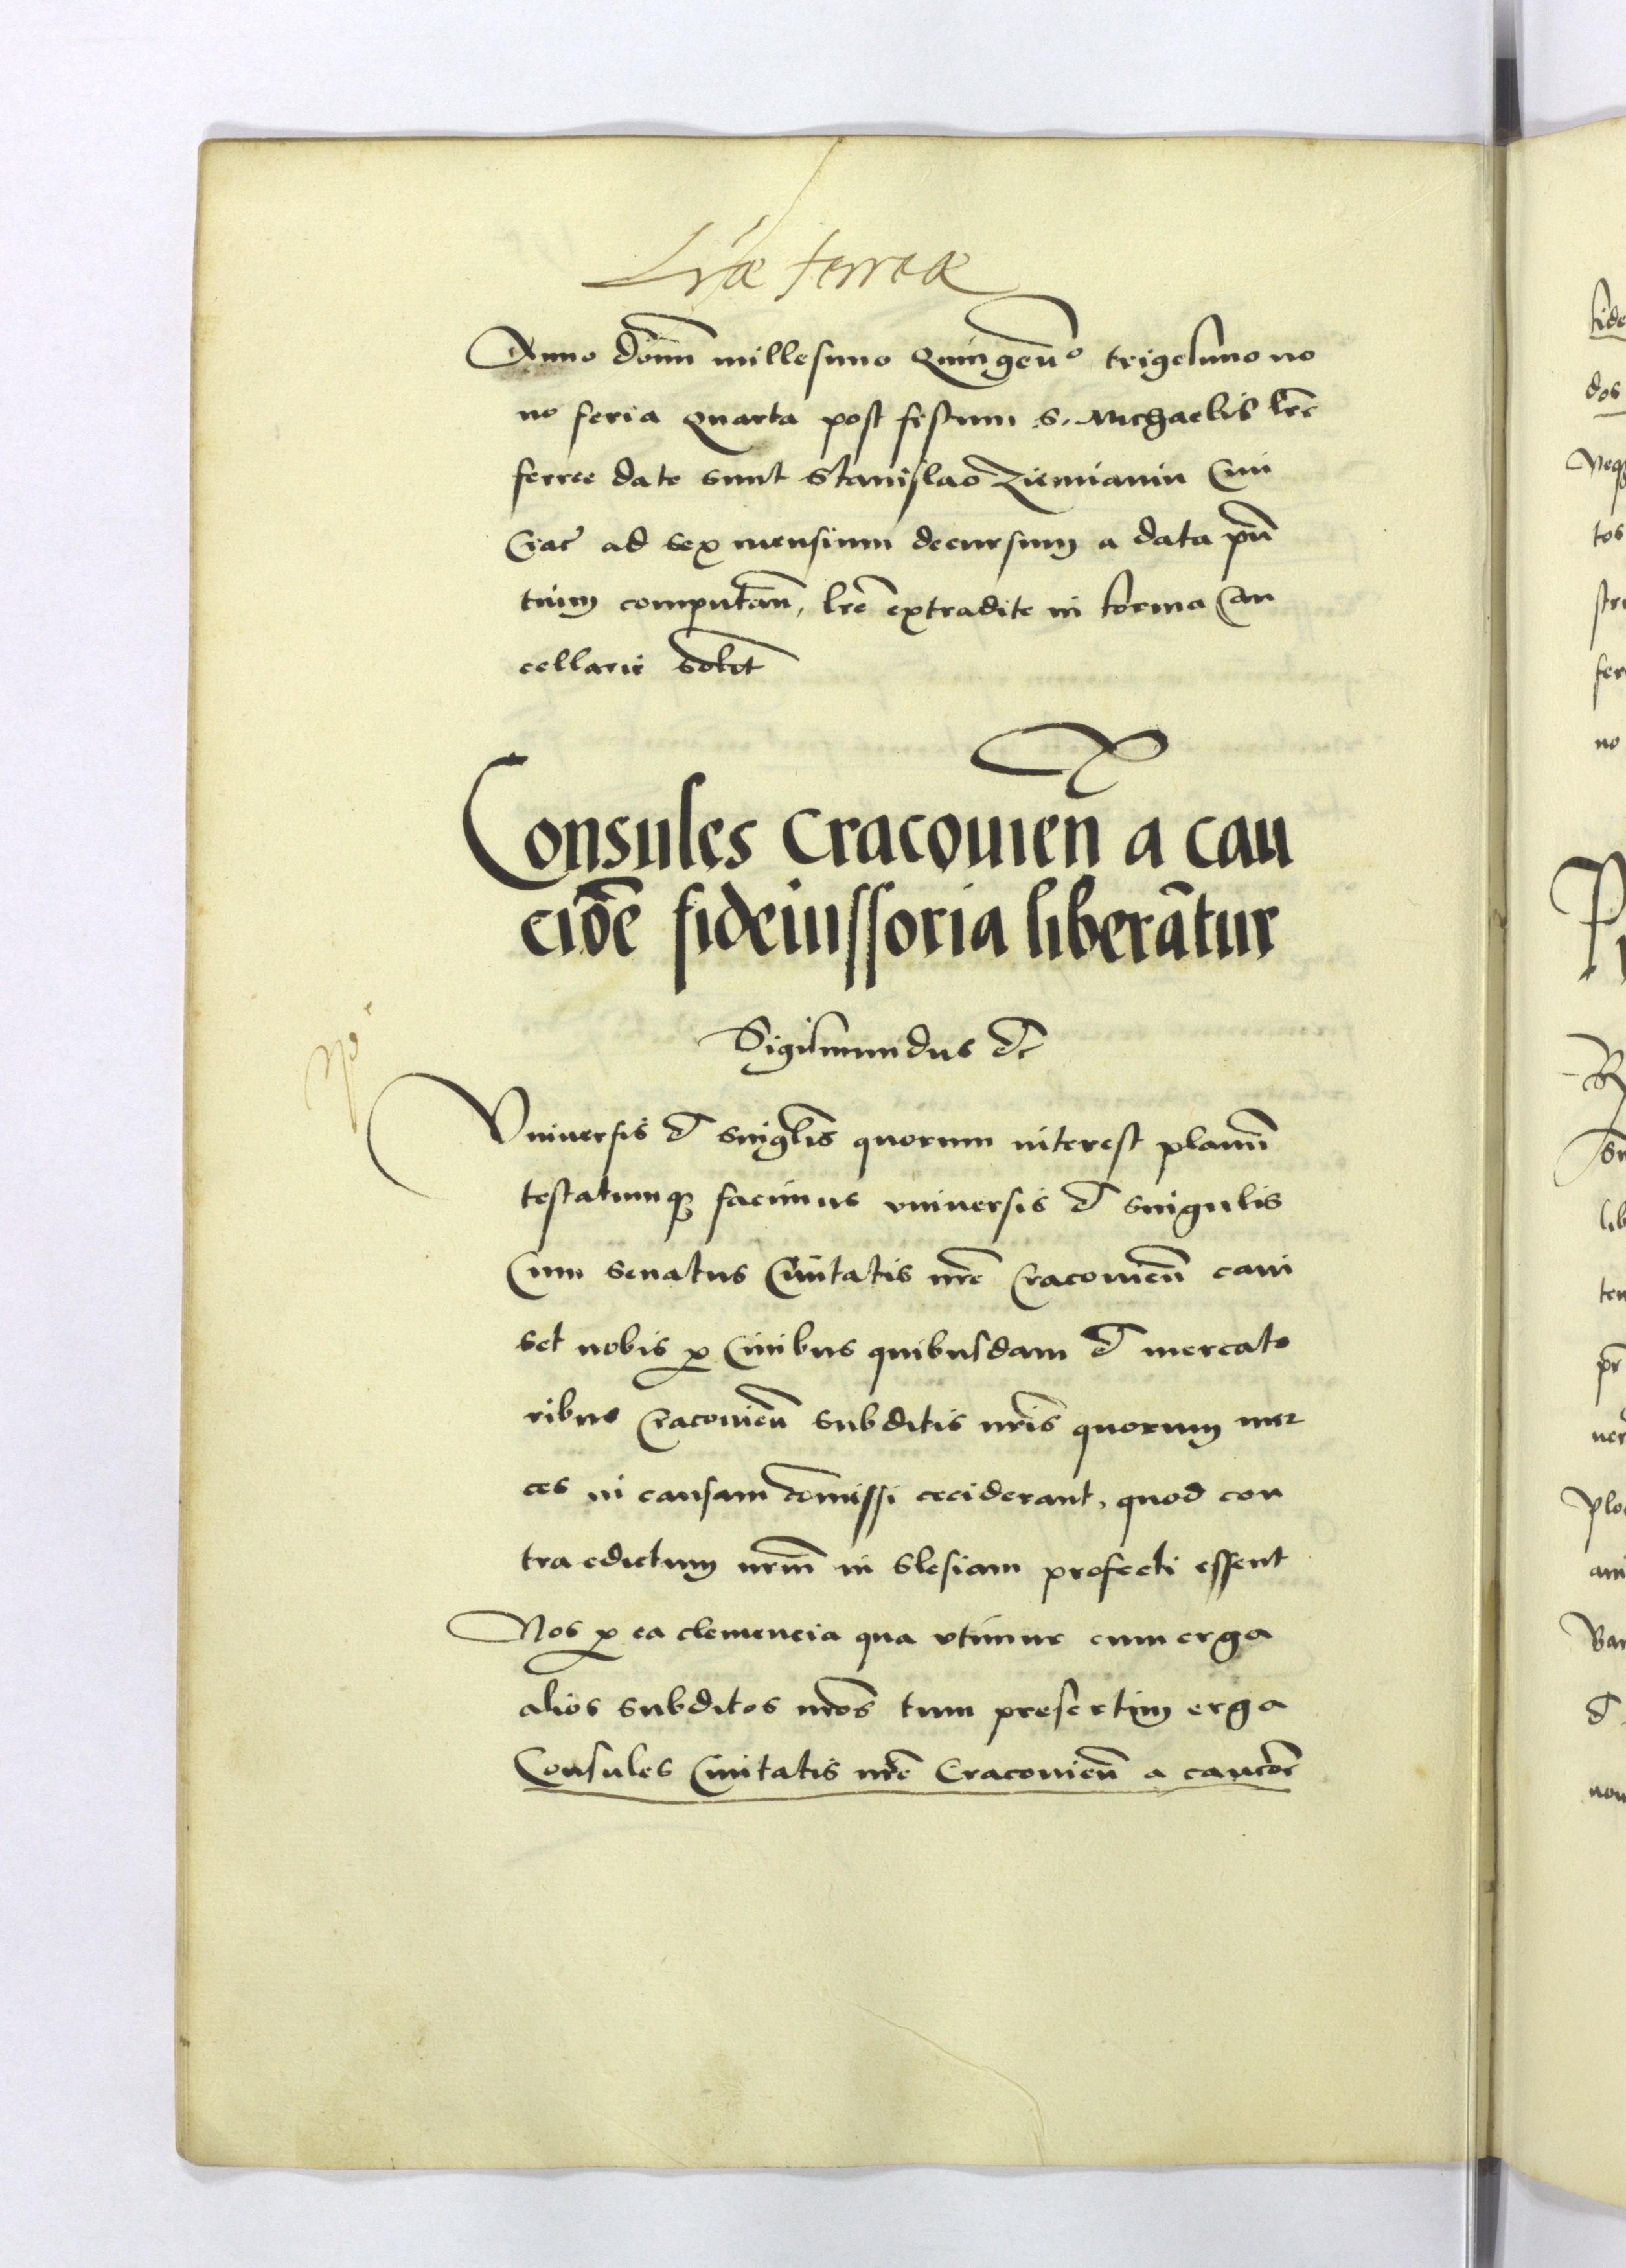 Lr̃æ ferreæ
Anno dom̃ millesimo Quingeñº trigesimo no
no feria Quarta post festum S. Michaelis lrẽ
ferree date sunt Stanislao Ziemianin Ciui
Crac̃ ad sex mensium decursum a data pñ
tium computañ, lrẽ extradite in forma Can
cellarie solit̃
Consules Cracouieñ a cau
ciõe fideiussoria liberãtur
Sigismundus &c
Vniuersis & singlĩs quorum interest planũ
testatumq; facimus vniuersis & singulis
Cum senatus Ciuitatis nrẽ Cracouieñ caui
set nobis p Ciuibus quibusdam & mercato
ribus Cracouieñ subditis nrĩs quorum mer
ces in causam com̃issi ceciderant, quod con
tra edictum nrũm in Slesiam profecti essent
Nos p ea clemencia qua vtimur cum erga
alios subditos nrõs tum presertim erga
Consules Ciuitatis nrẽ Cracouieñ a caucõe